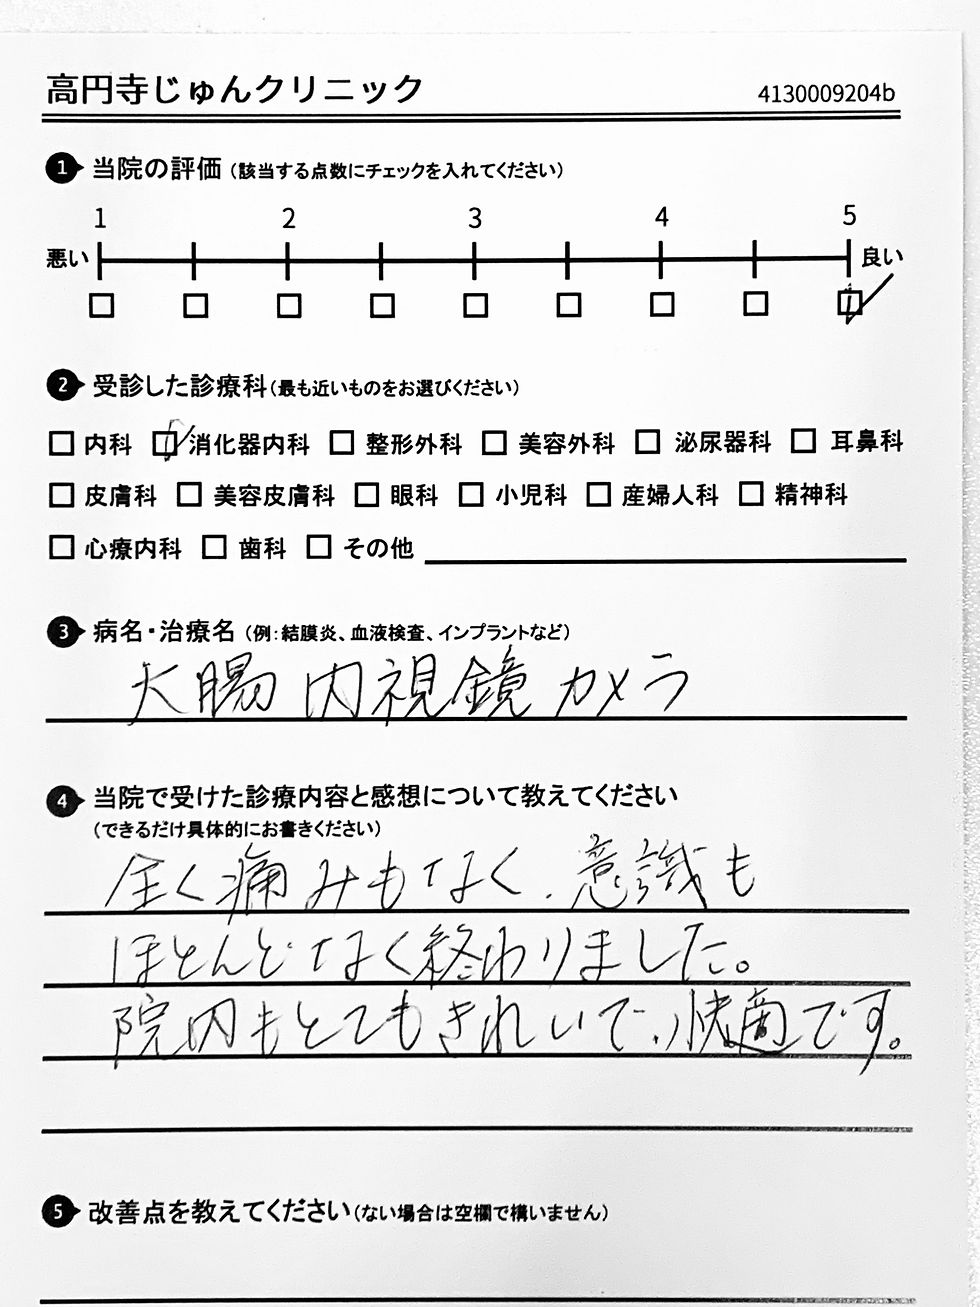 高円寺じゅんクリニック 4130009204b
1 当院の評価（該当する点数にチェックを入れてください）
1 2 3 4 5
悪い 良い
2 受診した診療科（最も近いものをお選びください）
内科 消化器内科 整形外科 美容外科 泌尿器科 耳鼻科
皮膚科 美容皮膚科 眼科 小児科 産婦人科 精神科
心療内科 歯科 その他
3 病名・治療名（例：結膜炎、血液検査、インプラントなど）
大腸内視鏡カメラ
4 当院で受けた診療内容と感想について教えてください
（できるだけ具体的にお書きください）
全く痛みもなく、意識も
ほとんどなく終わりました。
院内もとてもきれいで、快適です。
5 改善点を教えてください（ない場合は空欄で構いません）